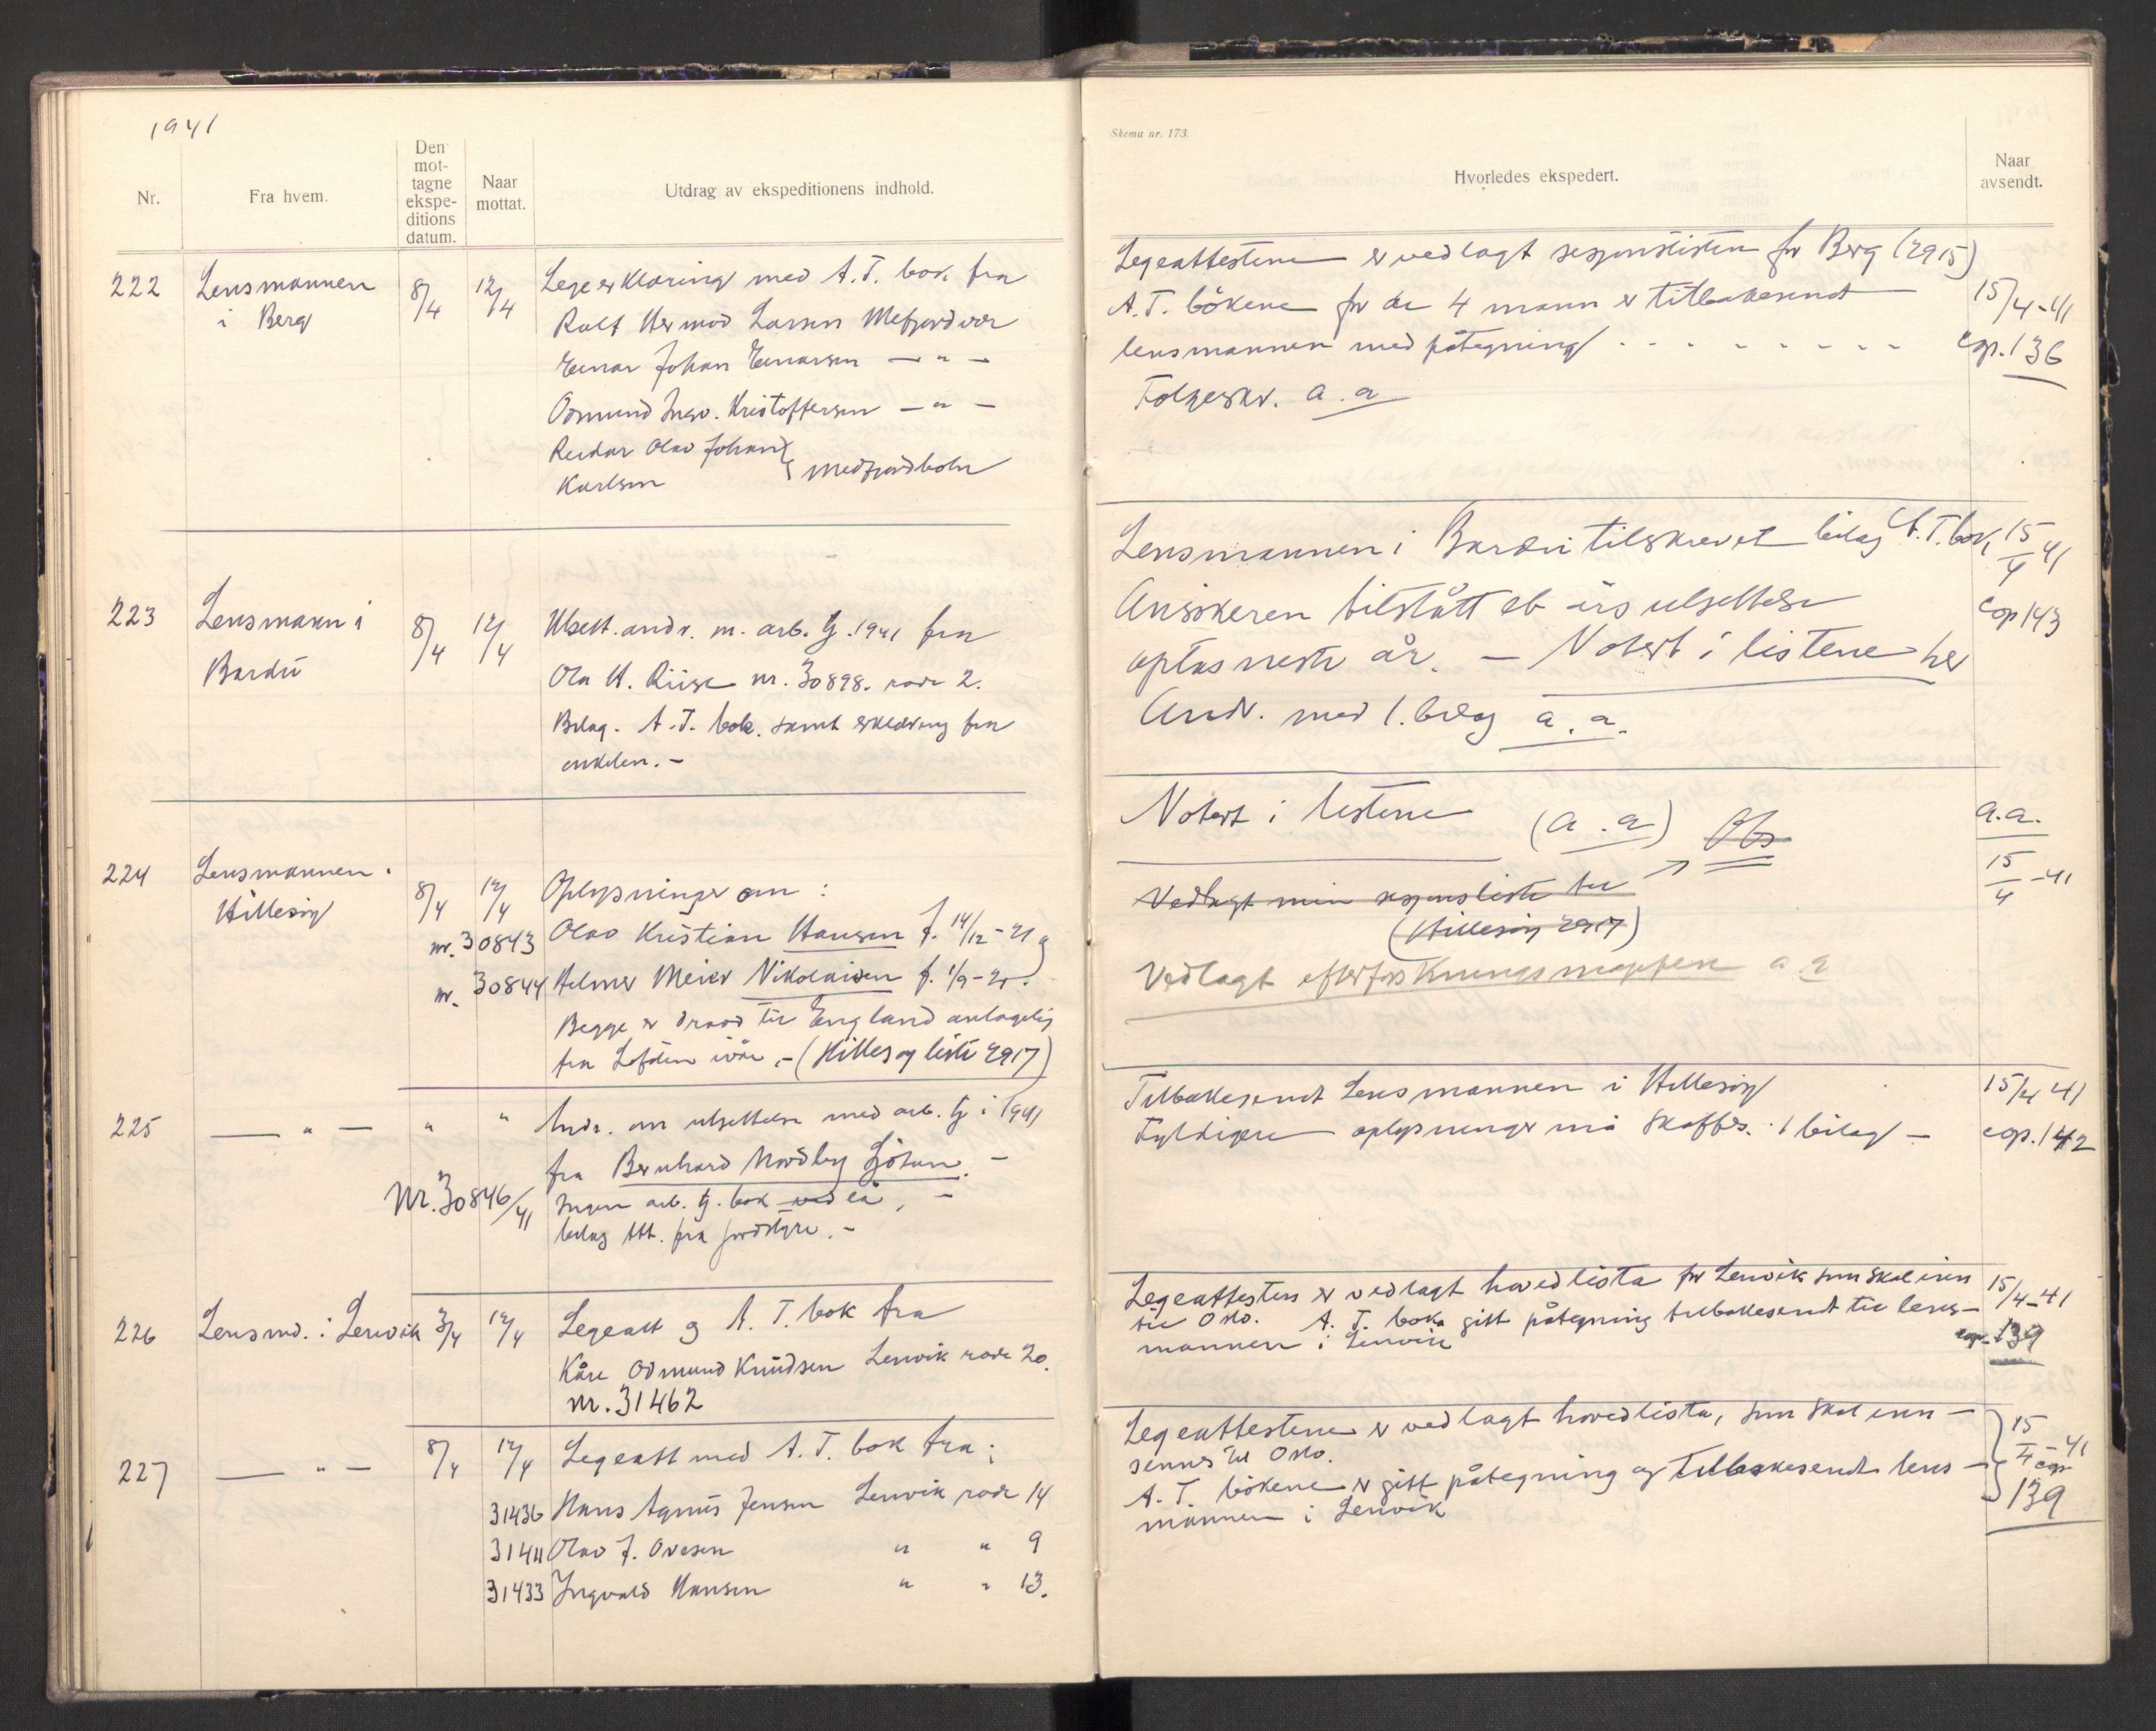 1941
Nr.
Fra hvem.
Den
mot-
tagne
ekspe-
ditions
datum.
Naar
mottat.
Utdrag av ekspeditionens indhold.
222 Lensmannen 8/4 12/4 Legeerklæring med A.T. bok fra
i Berg
Rolf Hermod Larsen Mefjordvær
Einar Johan Einarsen — " —
Osmund Ingv. Kristoffersen — " —
Reidar Olav Johan
Karlsen } Medfjordbotn
223 Lensmann i 8/4 12/4 Utsett. andr. m. arb. tj. 1941 fra
Bardu
Ola H. Riise nr. 30898. rode 2.
Bilag. A.T. bok. samt erklæring fra
onkelen. -
224 Lensmannen i 8/4 12/4 Oplysninger om :
Hillesøy
nr. 30843 Olav Kristian Hansen f. 14/12-21 og
nr. 30844 Helmer Meier Nikolaisen f. 1/9-21.
Begge er dratt til England antagelig
fra Lofoten i vår. - (Hillesøy liste 2917)
225 — " — " " Andr. om utsettelse med arb. tj i 1941
fra Bernhard Nordby Sjötun. -
Nr. 30846/41 Ingen arb. tj. bok ved lå, -
bilag Att. fra jordstyre. -
226 Lensmd. i Lenvik 3/4 12/4 Legeatt og A.T. bok fra
Kåre Odmund Knudsen Lenvik rode 20.
nr. 31462
227 — " — 8/4 12/4 Legeatt med A.T. bok fra :
31436 Hans Agnus Jensen Lenvik rode 14
31411 Olav J. Ovesen " " 9
31433 Ingvald Hansen " " 13.
Skema nr. 173.
Hvorledes ekspedert.
Naar
avsendt.
Legeattestene er vedlagt sesjonslisten for Berg (2915)
A.T. bökene for de 4 mann er tilbakesendt 15/4-41
lensmannen med påtegning - - - - - - - - cop. 136
Følgeskr. a.a
Lensmannen i Bardu tilskrevet bilag A.T. bok, 15/4 41
Ansökeren tilstått et års utsettelse cop 143
optas neste år. - Notert i listene her
Andr. med 1. bilag a.a.
Notert i listene (a.a) Obs a.a.
Vedlagt min sesjonsliste for 15/4-41
(Hillesøy 2917)
Vedlagt efterforskningsmappen a.a
Tilbakesendt Lensmannen i Hillesøy 15/4 41
Fyldigere oplysninger må skaffes. 1 bilag - cop. 142
Legeattesten er vedlagt hovedlista for Lenvik som skal inn 15/4-41
til Oslo. A.T. boka gitt påtegning tilbakesendt til lens-
mannen i Lenvik cop. 139
Legeattestene er vedlagt hovedlista, som skal inn- 15/4-41
sennes til Oslo. cop
A.T. bökene er gitt påtegning og tilbakesendt lens- 139
mannen i Lenvik